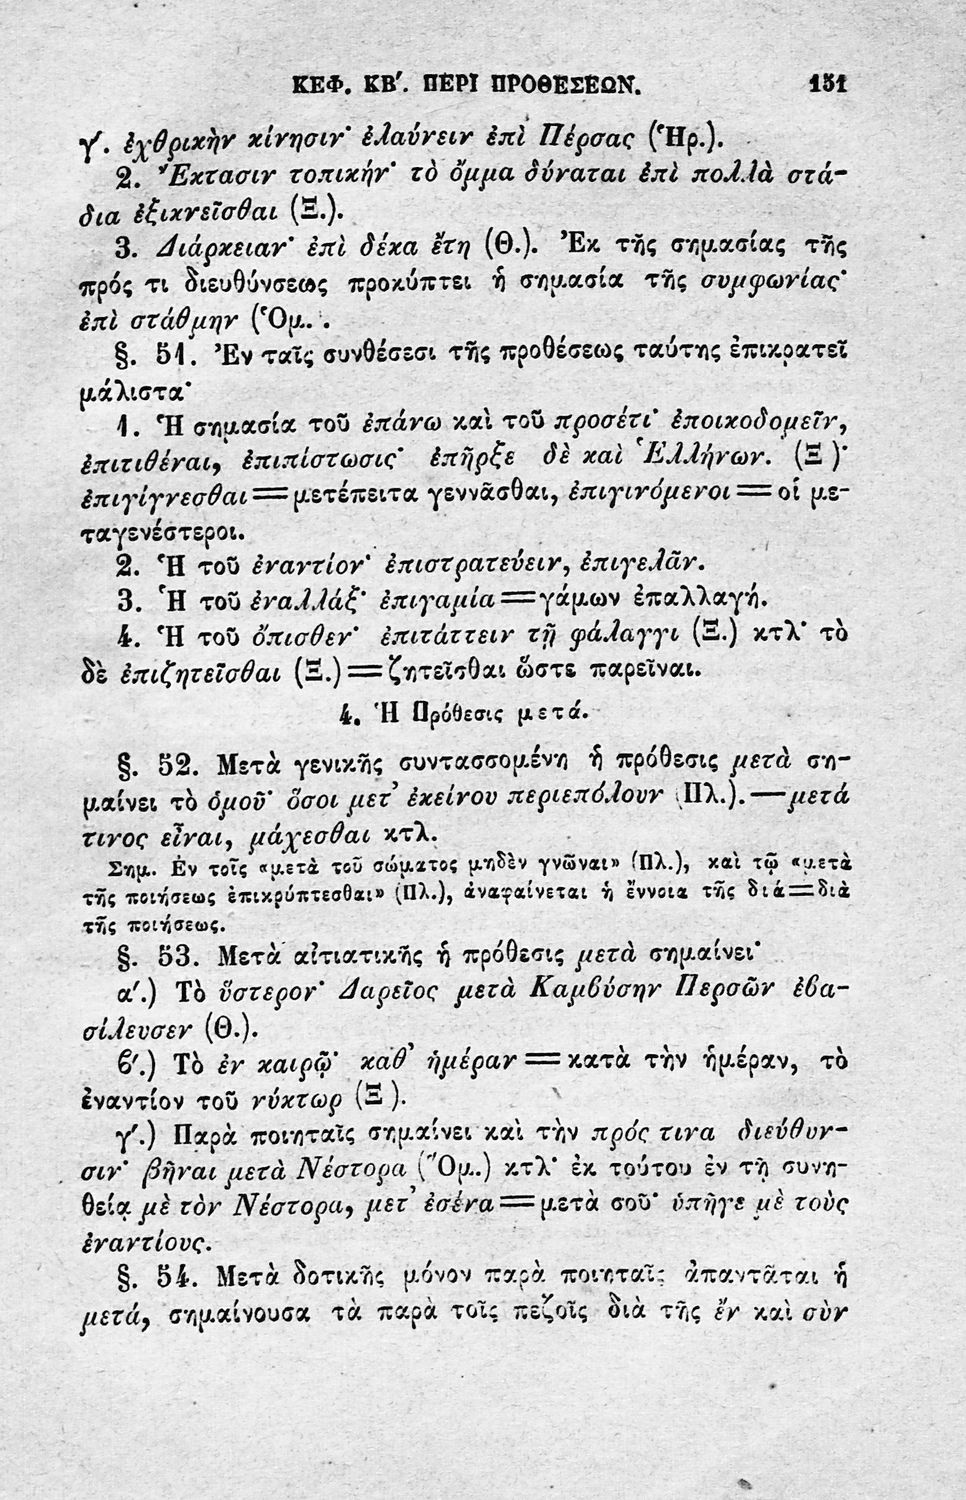 ΚΕΦ. ΚΒ΄. ΠΕΡΙ ΠΡΟΘΕΣΕΩΝ. 151
γ΄. ἐχθρικὴν κίνησιν· ἐλαύνειν ἐπὶ Πέρσας (Ἡρ.).
2. Ἔκτασιν τοπικήν· τὸ ὄμμα δύναται ἐπὶ πολλὰ στά-
δια ἐξικνεῖσθαι (Ξ.).
3. Διάρκειαν· ἐπὶ δέκα ἔτη (Θ.). Ἐκ τῆς σημασίας τῆς
πρός τι διευθύνσεως προκύπτει ἡ σημασία τῆς συμφωνίας·
ἐπὶ στάθμην (Ὁμ..
§. 51. Ἐν ταῖς συνθέσεσι τῆς προθέσεως ταύτης ἐπικρατεῖ
μάλιστα·
1. Ἡ σημασία τοῦ ἐπάνω καὶ τοῦ προσέτι· ἐποικοδομεῖν,
ἐπιτιθέναι, ἐπιπίστωσις· ἐπῆρξε δὲ καὶ Ἑλλήνων. (Ξ )·
ἐπιγίγνεσθαι = μετέπειτα γεννᾶσθαι, ἐπιγινόμενοι = οἱ με-
ταγενέστεροι.
2. Ἡ τοῦ ἐναντίον· ἐπιστρατεύειν, ἐπιγελᾶν.
3. Ἡ τοῦ ἐναλλάξ· ἐπιγαμία = γάμων ἐπαλλαγή.
4. Ἡ τοῦ ὄπισθεν· ἐπιτάττειν τῇ φάλαγγι (Ξ.) κτλ· τὸ
δὲ ἐπιζητεῖσθαι (Ξ.) = ζητεῖσθαι ὥστε παρεῖναι.
4. Ἡ Πρόθεσις μετά.
§. 52. Μετὰ γενικῆς συντασσομένη ἡ πρόθεσις μετὰ ση-
μαίνει τὸ ὁμοῦ· ὅσοι μετ' ἐκείνου περιεπόλουν (Πλ.). — μετά
τινος εἶναι, μάχεσθαι κτλ.
Σημ. Ἐν τοῖς «μετὰ τοῦ σώματος μηδὲν γνῶναι» (Πλ.), καὶ τῷ «μετὰ
τῆς ποιήσεως ἐπικρύπτεσθαι» (Πλ.), ἀναφαίνεται ἡ ἔννοια τῆς διά = διὰ
τῆς ποιήσεως.
§. 53. Μετὰ αἰτιατικῆς ἡ πρόθεσις μετὰ σημαίνει·
α΄.) Τὸ ὕστερον· Δαρεῖος μετὰ Καμβύσην Περσῶν ἐβα-
σίλευσεν (Θ.).
β΄.) Τὸ ἐν καιρῷ· καθ' ἡμέραν = κατὰ τὴν ἡμέραν, τὸ
ἐναντίον τοῦ νύκτωρ (Ξ ).
γ΄.) Παρὰ ποιηταῖς σημαίνει καὶ τὴν πρός τινα διεύθυν-
σιν· βῆναι μετὰ Νέστορα (Ὅμ..) κτλ· ἐκ τούτου ἐν τῇ συνη-
θείᾳ μὲ τὸν Νέστορα, μετ' ἐσένα = μετὰ σοῦ· ὑπῆγε μὲ τοὺς
ἐναντίους.
§. 54. Μετὰ δοτικῆς μόνον παρὰ ποιηταῖς ἀπαντᾶται ἡ
μετά, σημαίνουσα τὰ παρὰ τοῖς πεζοῖς διὰ τῆς ἔν καὶ σὺν